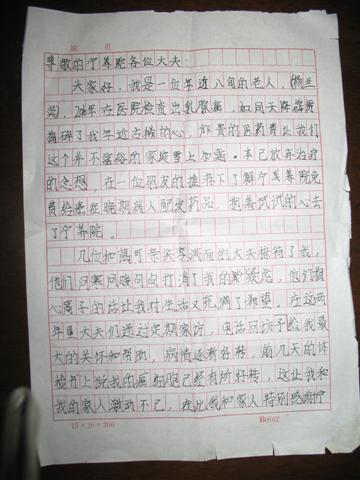 第 页
尊敬的宁养院各位大夫:
大家好,我是一位年近八旬的老人,(杨兰
英),2006年在医院检查出乳腺癌,如同天降霹雳
击碎了我年近古稀的心,昂贵的医药费让我们
这个并不富裕的家庭雪上加霜。本已放弃治疗
的念想,在一位朋友的推荐下了解宁养院免
费给癌症晚期病人配发药品,抱着试试的心去
了宁养院。
几位和蔼可亲笑容满面的大夫接待了我,
他们问寒问暖句句打消了我的疑虑,他们掏
心窝子的话让我对生活又充满了期望。在这两
年里大夫们通过定期家访,电话回访予给我最
大的关怀和帮助,病情逐渐好转,前几天的体
检书上说我的癌细胞已经有所好转,这让我和
我的家人激动不已,在此我和家人特别感谢宁
15×20=300
B0602